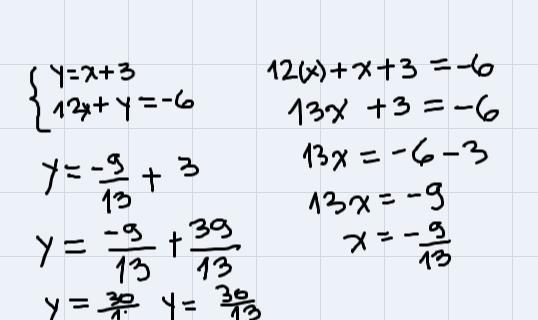 y=x+3
12x+y=-6
y=-9/13+3
y=-9/13+39/13
y=30/ y=30/13
12(x)+x+3=-6
13x+3=-6
13x=-6-3
13x=-9
x=-9/13